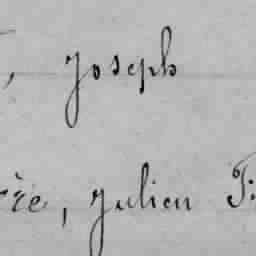 , Joseph
ère, Julien